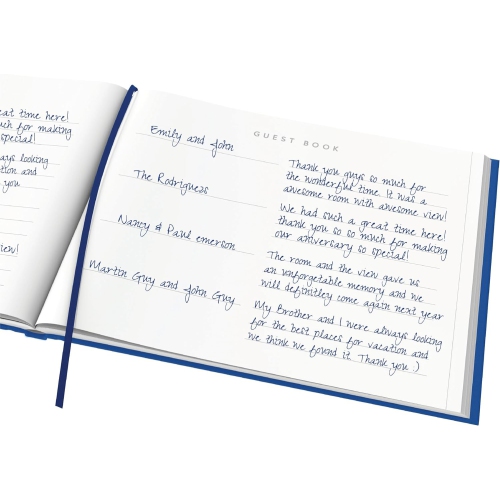 eat time here!
uch for making
special!
ays looking
tion and
you
iew!
GUEST BOOK
Emily and John
Thank you guys so much for
the wonderful time. It was a
awesome room with awesome view!
The Rodrigueas
We had such a great time here!
thank you so so much for making
our aniversary so special!
Nancy & Paul emerson
The room and the view gave us
an unforgetable memory and we
will definitley come again next year
Martin Guy and John Guy
My Brother and I were always looking
for the best places for vacation and
we think we found it. Thank you )